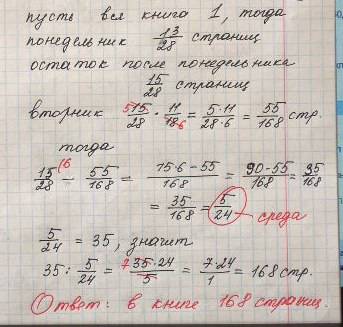 пусть вся книга 1, тогда
понедельник 13/28 страниц
остаток после понедельника
15/28 страниц
вторник 5 15/28 · 11/18 6 = 5·11/28·6 = 55/168 стр.
тогда
15/28 (6 − 55/168 = 15·6−55/168 = 90−55/168 = 35/168
= 35/168 = 5/24 среда
5/24 = 35, значит
35 : 5/24 = 7 35·24/5 = 7·24/1 = 168 стр.
Ответ: в книге 168 страниц.